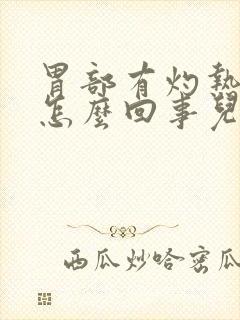 胃部有灼熱
怎麼回事兒
西瓜炒哈密瓜